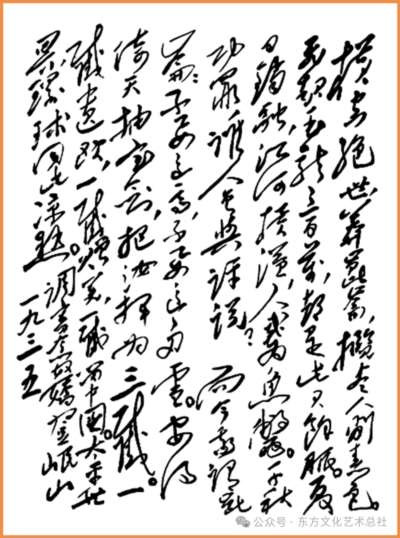 横空绝世莽崑崙,攪尽人间春色。
飞起玉龙三百万,都是此 餘脈。夏
日銷融,江河横溢,人或为鱼鳖。千秋
功罪,谁人曾與评说?而今我谓崑
崙:不要这高,不要这多雪。安得
倚天抽宝剑,把汝挥为三截。一
截遗欧,一截赠美,一截留中国。太平世
界環球同此凉热。调寄念奴嬌 登岷山
一九三五
公众号·东方文化艺术总社